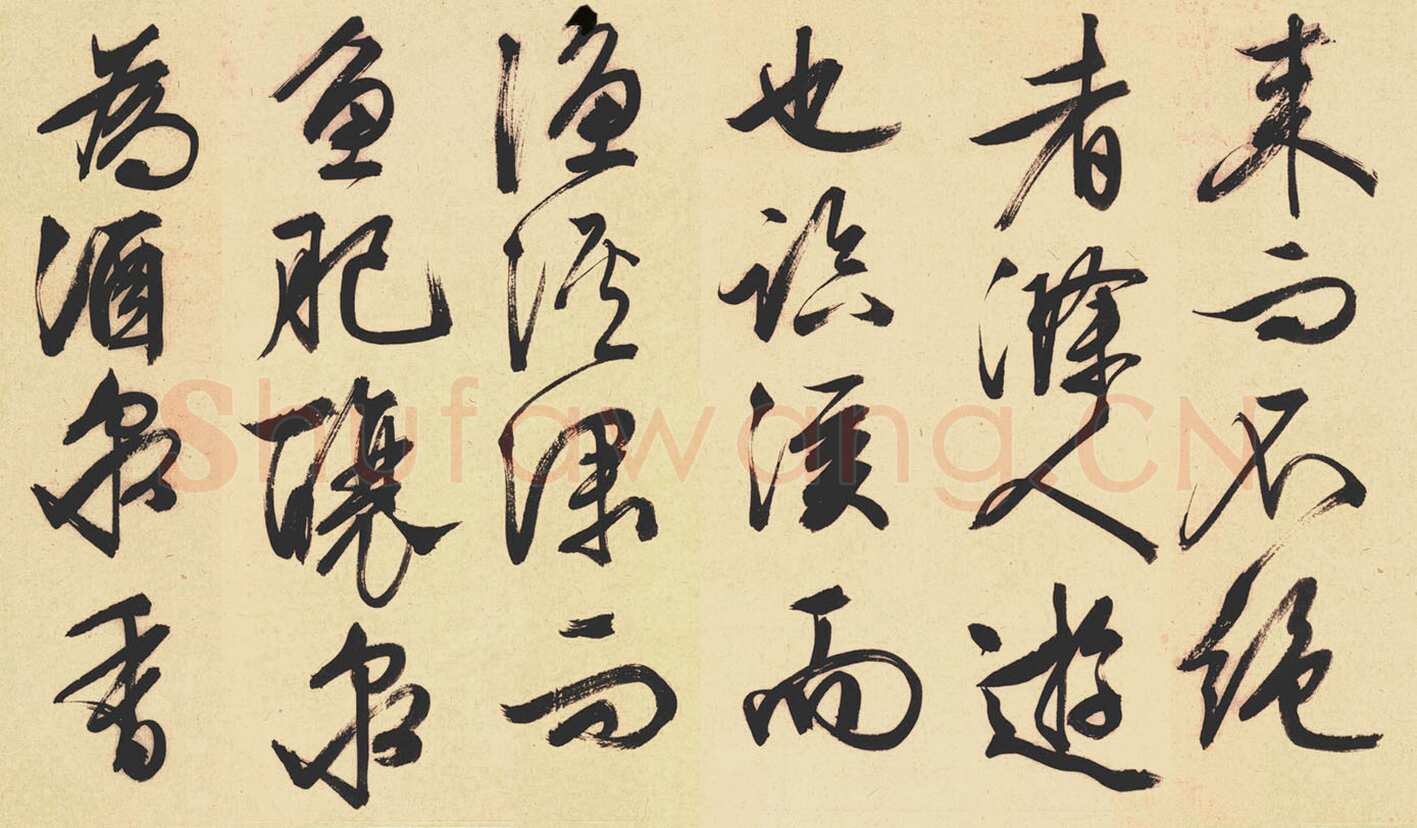 来而不絶
者滁人遊
也臨溪而
漁溪深而
魚肥釀泉
為酒泉香
Shufawang.CN